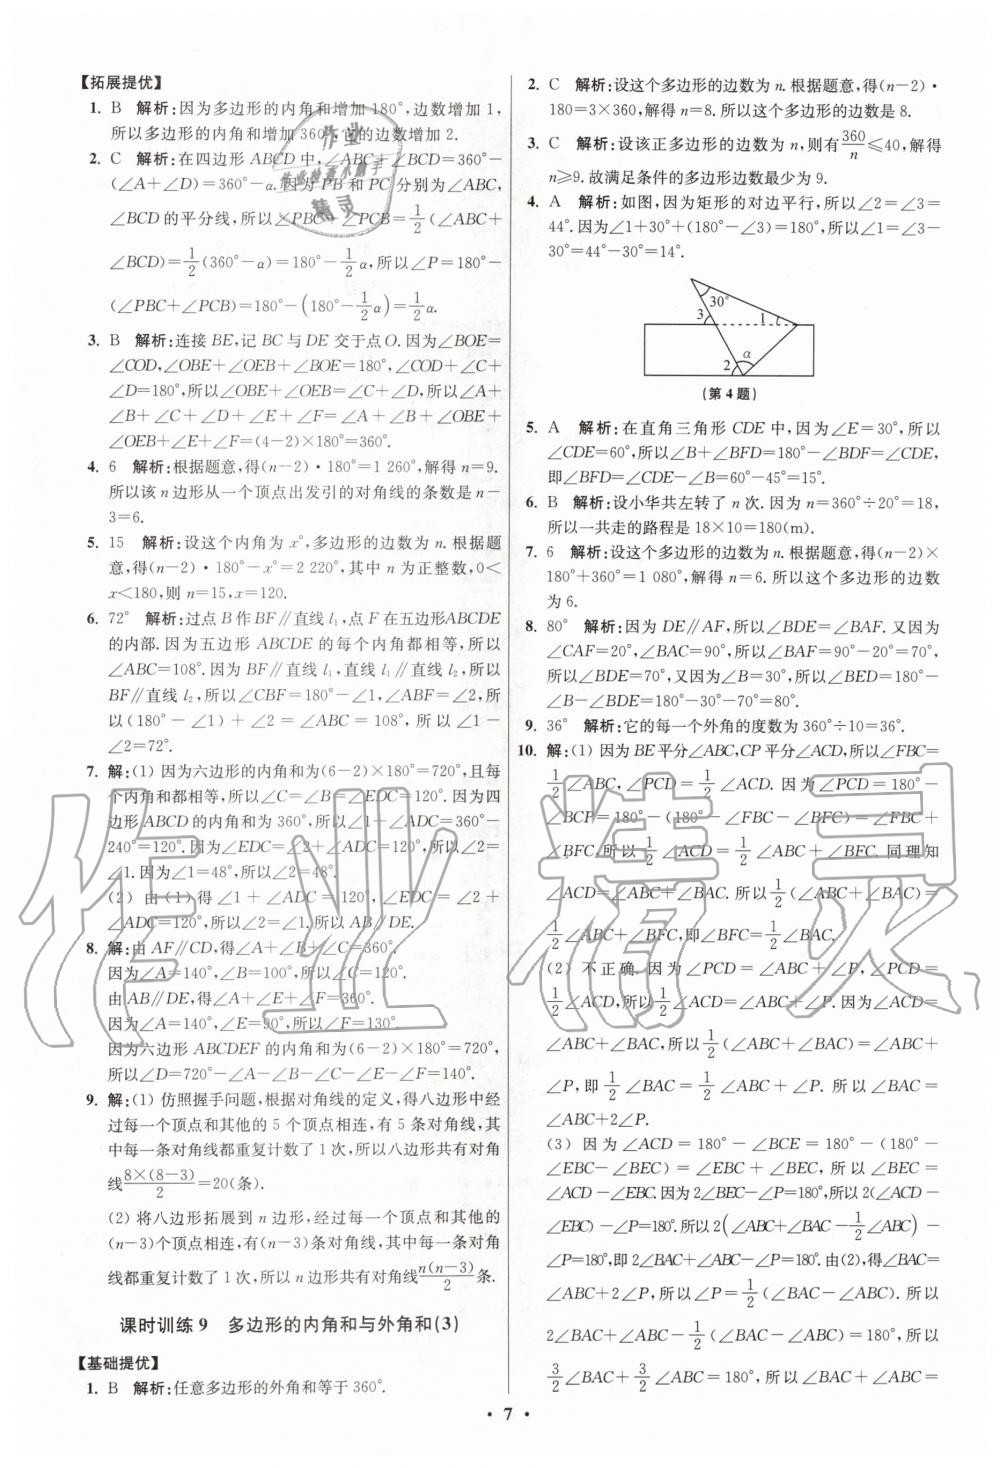 【拓展提优】
1. B 解析:因为多边形的内角和增加180°,边数增加1,
所以多边形的内角和增加360°,它的边数增加2.
2. C 解析:在四边形ABCD中,∠ABC+∠BCD=360°-
(∠A+∠D)=360°-α.因为PB和PC分别为∠ABC,
∠BCD的平分线,所以∠PBC+∠PCB=1/2(∠ABC+
∠BCD)=1/2(360°-α)=180°-1/2α,所以∠P=180°-
(∠PBC+∠PCB)=180°-(180°-1/2α)=1/2α.
3. B 解析:连接BE,记BC与DE交于点O.因为∠BOE=
∠COD,∠OBE+∠OEB+∠BOE=180°,∠COD+∠C+
∠D=180°,所以∠OBE+∠OEB=∠C+∠D,所以∠A+
∠B+∠C+∠D+∠E+∠F=∠A+∠B+∠OBE+
∠OEB+∠E+∠F=(4-2)×180°=360°.
4. 6 解析:根据题意,得(n-2)·180°=1 260°,解得n=9.
所以该n边形从一个顶点出发引的对角线的条数是n-
3=6.
5. 15 解析:设这个内角为x°,多边形的边数为n.根据题
意,得(n-2)·180°-x°=2 220°,其中n为正整数,0<
x<180,则n=15,x=120.
6. 72° 解析:过点B作BF∥直线l₁,点F在五边形ABCDE
的内部.因为五边形ABCDE的每个内角都相等,所以
∠ABC=108°.因为BF∥直线l₁,直线l₁∥直线l₂,所以
BF∥直线l₂,所以∠CBF=180°-∠1,∠ABF=∠2,所
以(180°-∠1)+∠2=∠ABC=108°,所以∠1-
∠2=72°.
7. 解:(1) 因为六边形的内角和为(6-2)×180°=720°,且每
个内角和都相等,所以∠C=∠B=∠EDC=120°.因为四
边形ABCD的内角和为360°,所以∠1+∠ADC=360°-
240°=120°.因为∠EDC=∠2+∠ADC=120°,所以∠2=
∠1.因为∠1=48°,所以∠2=48°.
(2) 由(1)得∠1+∠ADC=120°,∠EDC=∠2+
∠ADC=120°,所以∠2=∠1.所以AB∥DE.
8. 解:由AF∥CD,得∠A+∠B+∠C=360°.
因为∠A=140°,∠B=100°,所以∠C=120°.
由AB∥DE,得∠A+∠E+∠F=360°.
因为∠A=140°,∠E=90°,所以∠F=130°.
因为六边形ABCDEF的内角和为(6-2)×180°=720°,
所以∠D=720°-∠A-∠B-∠C-∠E-∠F=140°.
9. 解:(1) 仿照握手问题,根据对角线的定义,得八边形中经
过每一个顶点和其他的5个顶点相连,有5条对角线,其
中每一条对角线都重复计数了1次,所以八边形共有对角
线8×(8-3)/2=20(条).
(2) 将八边形拓展到n边形,经过每一个顶点和其他的
(n-3)个顶点相连,有(n-3)条对角线,其中每一条对角
线都重复计数了1次,所以n边形共有对角线n(n-3)/2条.
课时训练9 多边形的内角和与外角和(3)
【基础提优】
1. B 解析:任意多边形的外角和等于360°.
2. C 解析:设这个多边形的边数为n.根据题意,得(n-2)·
180=3×360,解得n=8.所以这个多边形的边数是8.
3. C 解析:设该正多边形的边数为n,则有360/n≤40,解得
n≥9.故满足条件的多边形边数最少为9.
4. A 解析:如图,因为矩形的对边平行,所以∠2=∠3=
44°.因为∠1+30°+(180°-∠3)=180°,所以∠1=∠3-
30°=44°-30°=14°.
30°
3
1
2
α
(第4题)
5. A 解析:在直角三角形CDE中,因为∠E=30°,所以
∠CDE=60°,所以∠B+∠BFD=180°-∠BDF=∠CDE,
即∠BFD=∠CDE-∠B=60°-45°=15°.
6. B 解析:设小华共左转了n次.因为n=360°÷20°=18,
所以一共走的路程是18×10=180(m).
7. 6 解析:设这个多边形的边数为n.根据题意,得(n-2)×
180°+360°=1 080°,解得n=6.所以这个多边形的边数
为6.
8. 80° 解析:因为DE∥AF,所以∠BDE=∠BAF.又因为
∠CAF=20°,∠BAC=90°,所以∠BAF=90°-20°=70°,
所以∠BDE=70°,又因为∠B=30°,所以∠BED=180°-
∠B-∠BDE=180°-30°-70°=80°.
9. 36° 解析:它的每一个外角的度数为360°÷10=36°.
10. 解:(1) 因为BE平分∠ABC,CP平分∠ACD,所以∠FBC=
1/2∠ABC,∠PCD=1/2∠ACD.因为∠PCD=180°-
∠BCF=180°-(180°-∠FBC-∠BFC)=∠FBC+
∠BFC,所以1/2∠ACD=1/2∠ABC+∠BFC.同理知
∠ACD=∠ABC+∠BAC.所以1/2(∠ABC+∠BAC)=
1/2∠ABC+∠BFC,即∠BFC=1/2∠BAC.
(2) 不正确.因为∠PCD=∠ABC+∠P,∠PCD=
1/2∠ACD,所以1/2∠ACD=∠ABC+∠P.因为∠ACD=
∠ABC+∠BAC,所以1/2(∠ABC+∠BAC)=∠ABC+
∠P,即1/2∠BAC=1/2∠ABC+∠P.所以∠BAC=
∠ABC+2∠P.
(3) 因为∠ACD=180°-∠BCE=180°-(180°-
∠EBC-∠BEC)=∠EBC+∠BEC,所以∠BEC=
∠ACD-∠EBC.因为2∠BEC-∠P=180°,所以2(∠ACD-
∠EBC)-∠P=180°.所以2(∠ABC+∠BAC-1/2∠ABC)-
∠P=180°,即2∠BAC+∠ABC-∠P=180°.由(2),得∠BAC=
∠ABC+2∠P,所以∠P=1/2(∠BAC-∠ABC).所以
2∠BAC+∠ABC-1/2(∠BAC-∠ABC)=180°,所以
3/2∠BAC+3/2∠ABC=180°,所以∠BAC+∠ABC=
·7·
作业精灵
作业
作业检查小助手
精灵